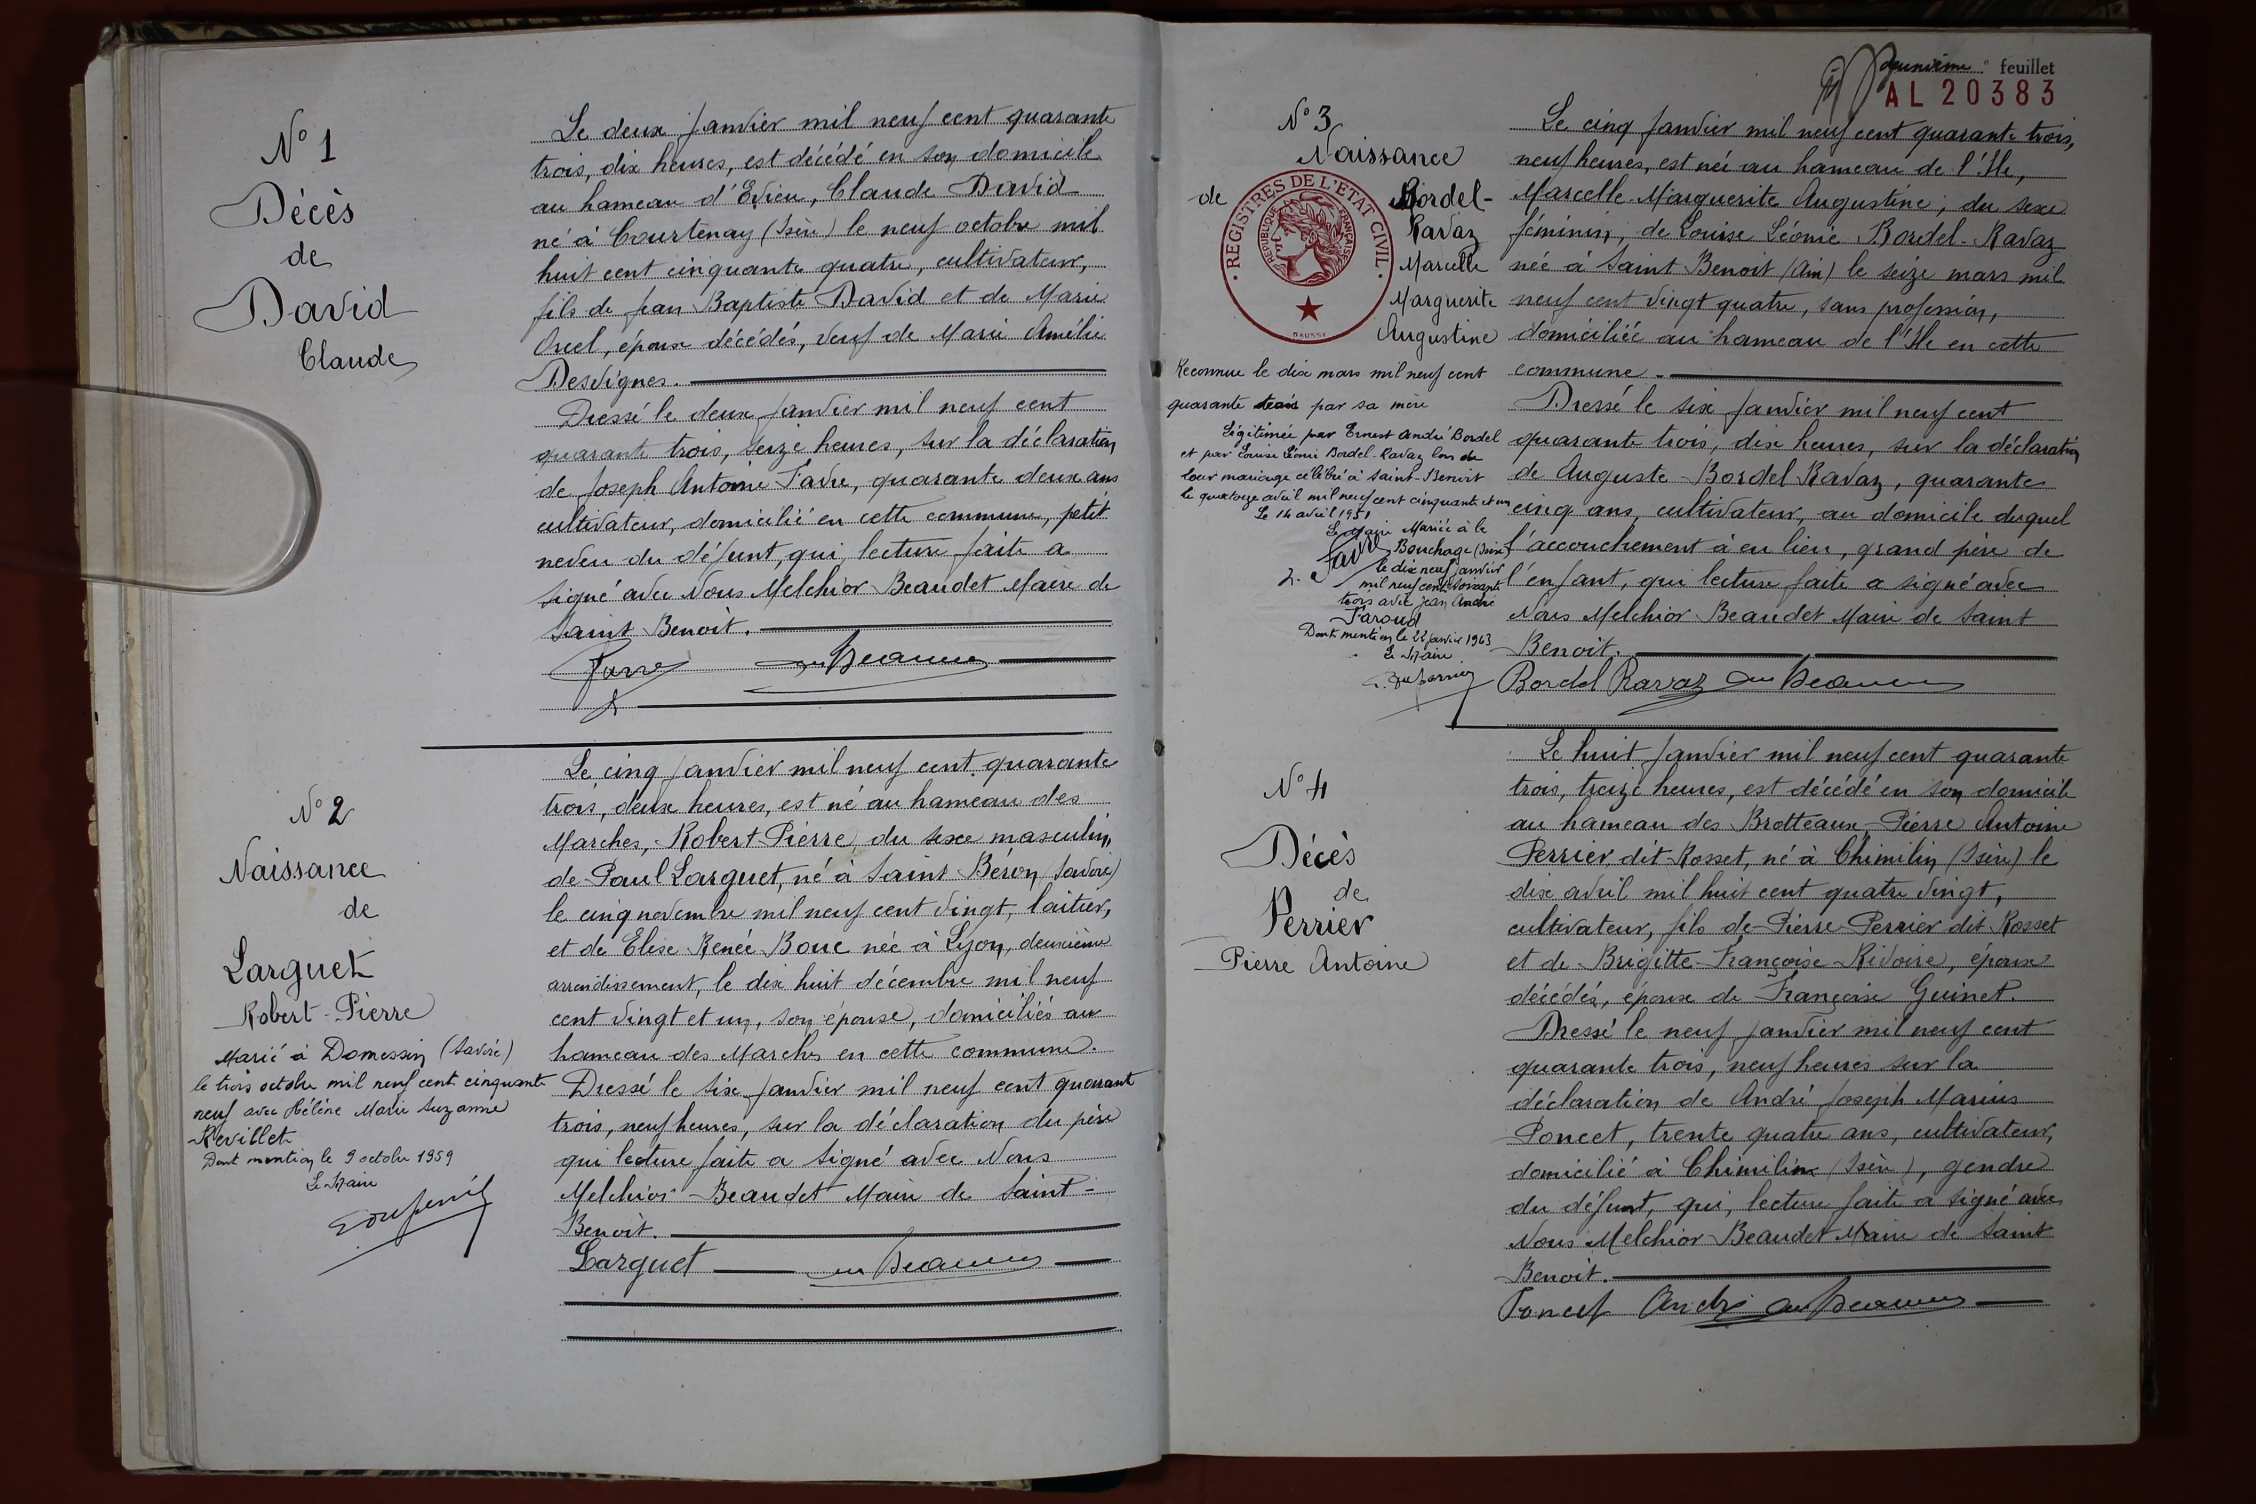 N° 1
Décès
de
David
Claude
Le deux Janvier mil neuf cent quarante
trois, dix heures, est décédé en son domicile
au hameau d'Evieu, Claude David
né à Courtenay (Isère) le neuf octobre mil
huit cent cinquante quatre, cultivateur,
fils de Jean Baptiste David et de Marie
Orcel, époux décédés, veuf de Marie Amélie
Desvignes.
Dressé le deux Janvier mil neuf cent
quarante trois, seize heures, sur la déclaration
de Joseph Antoine Favre, quarante deux ans
cultivateur, domicilié en cette commune, petit
neveu du défunt, qui, lecture faite a
signé avec Nous Melchior Beaudet Maire de
Saint Benoit.
N° 2
Naissance
de
Larguet
Robert-Pierre
Marié à Domessin (Savoie)
le trois octobre mil neuf cent cinquante
neuf avec Hélène Marie Suzanne
Revillet
Dont mention le 9 octobre 1959
Le Maire
Le cinq Janvier mil neuf cent quarante
trois, deux heures, est né au hameau des
Marches, Robert Pierre, du sexe masculin,
de Paul Larguet, né à Saint Béron (Savoie)
le cinq novembre mil neuf cent vingt, laitier,
et de Elise Renée Bouc née à Lyon, deuxième
arrondissement, le dix huit décembre mil neuf
cent vingt et un, son épouse, domiciliés au
hameau des Marches en cette commune.
Dressé le six Janvier mil neuf cent quarant
trois, neuf heures, sur la déclaration du père
qui lecture faite a signé avec Nous
Melchior Beaudet Maire de Saint-
Benoit.
Larguet
deuxième feuillet
AL 20383
N° 3
Naissance
de Bordel-
Ravaz
Marcelle
Marguerite
Augustine
REGISTRES DE L'ETAT CIVIL
REPUBLIQUE FRANÇAISE
Reconnue le dix mars mil neuf cent
quarante trois par sa mère
Légitimée par Ernest André Bordel
et par Louise Léonie Bordel-Ravaz lors de
leur mariage célébré à Saint-Benoit
le quatorze avril mil neuf cent cinquante et un
Le 14 avril 1951
Le Maire
Favre
Mariée à le
Bouchage (Isère)
le dix neuf Janvier
mil neuf cent soixante
trois avec Jean André
Faroud
Dont mention le 22 janvier 1963
Le Maire
Le cinq Janvier mil neuf cent quarante trois,
neuf heures, est née au hameau de l'Ile,
Marcelle Marguerite Augustine, du sexe
féminin, de Louise Léonie Bordel-Ravaz
née à Saint Benoit (Ain) le seize mars mil
neuf cent vingt quatre, sans profession,
domiciliée au hameau de l'Ile en cette
commune.
Dressé le six Janvier mil neuf cent
quarante trois, dix heures, sur la déclaration
de Auguste Bordel Ravaz, quarante
cinq ans, cultivateur, au domicile duquel
l'accouchement à eu lieu, grand père de
l'enfant, qui lecture faite a signé avec
Nous Melchior Beaudet Maire de Saint
Benoit.
Bordel Ravaz
N° 4
Décès
de
Perrier
Pierre Antoine
Le huit Janvier mil neuf cent quarante
trois, treize heures, est décédé en son domicile
au hameau des Brotteaux, Pierre Antoine
Perrier dit Rosset, né à Chimilin (Isère) le
dix avril mil huit cent quatre vingt,
cultivateur, fils de Pierre Perrier dit Rosset
et de Brigitte Françoise Rivoire, époux
décédés, époux de Françoise Guinet.
Dressé le neuf Janvier mil neuf cent
quarante trois, neuf heures sur la
déclaration de André Joseph Marius
Poncet, trente quatre ans, cultivateur,
domicilié à Chimilin (Isère), gendre
du défunt, qui, lecture faite a signé avec
Nous Melchior Beaudet Maire de Saint
Benoit.
Poncet André